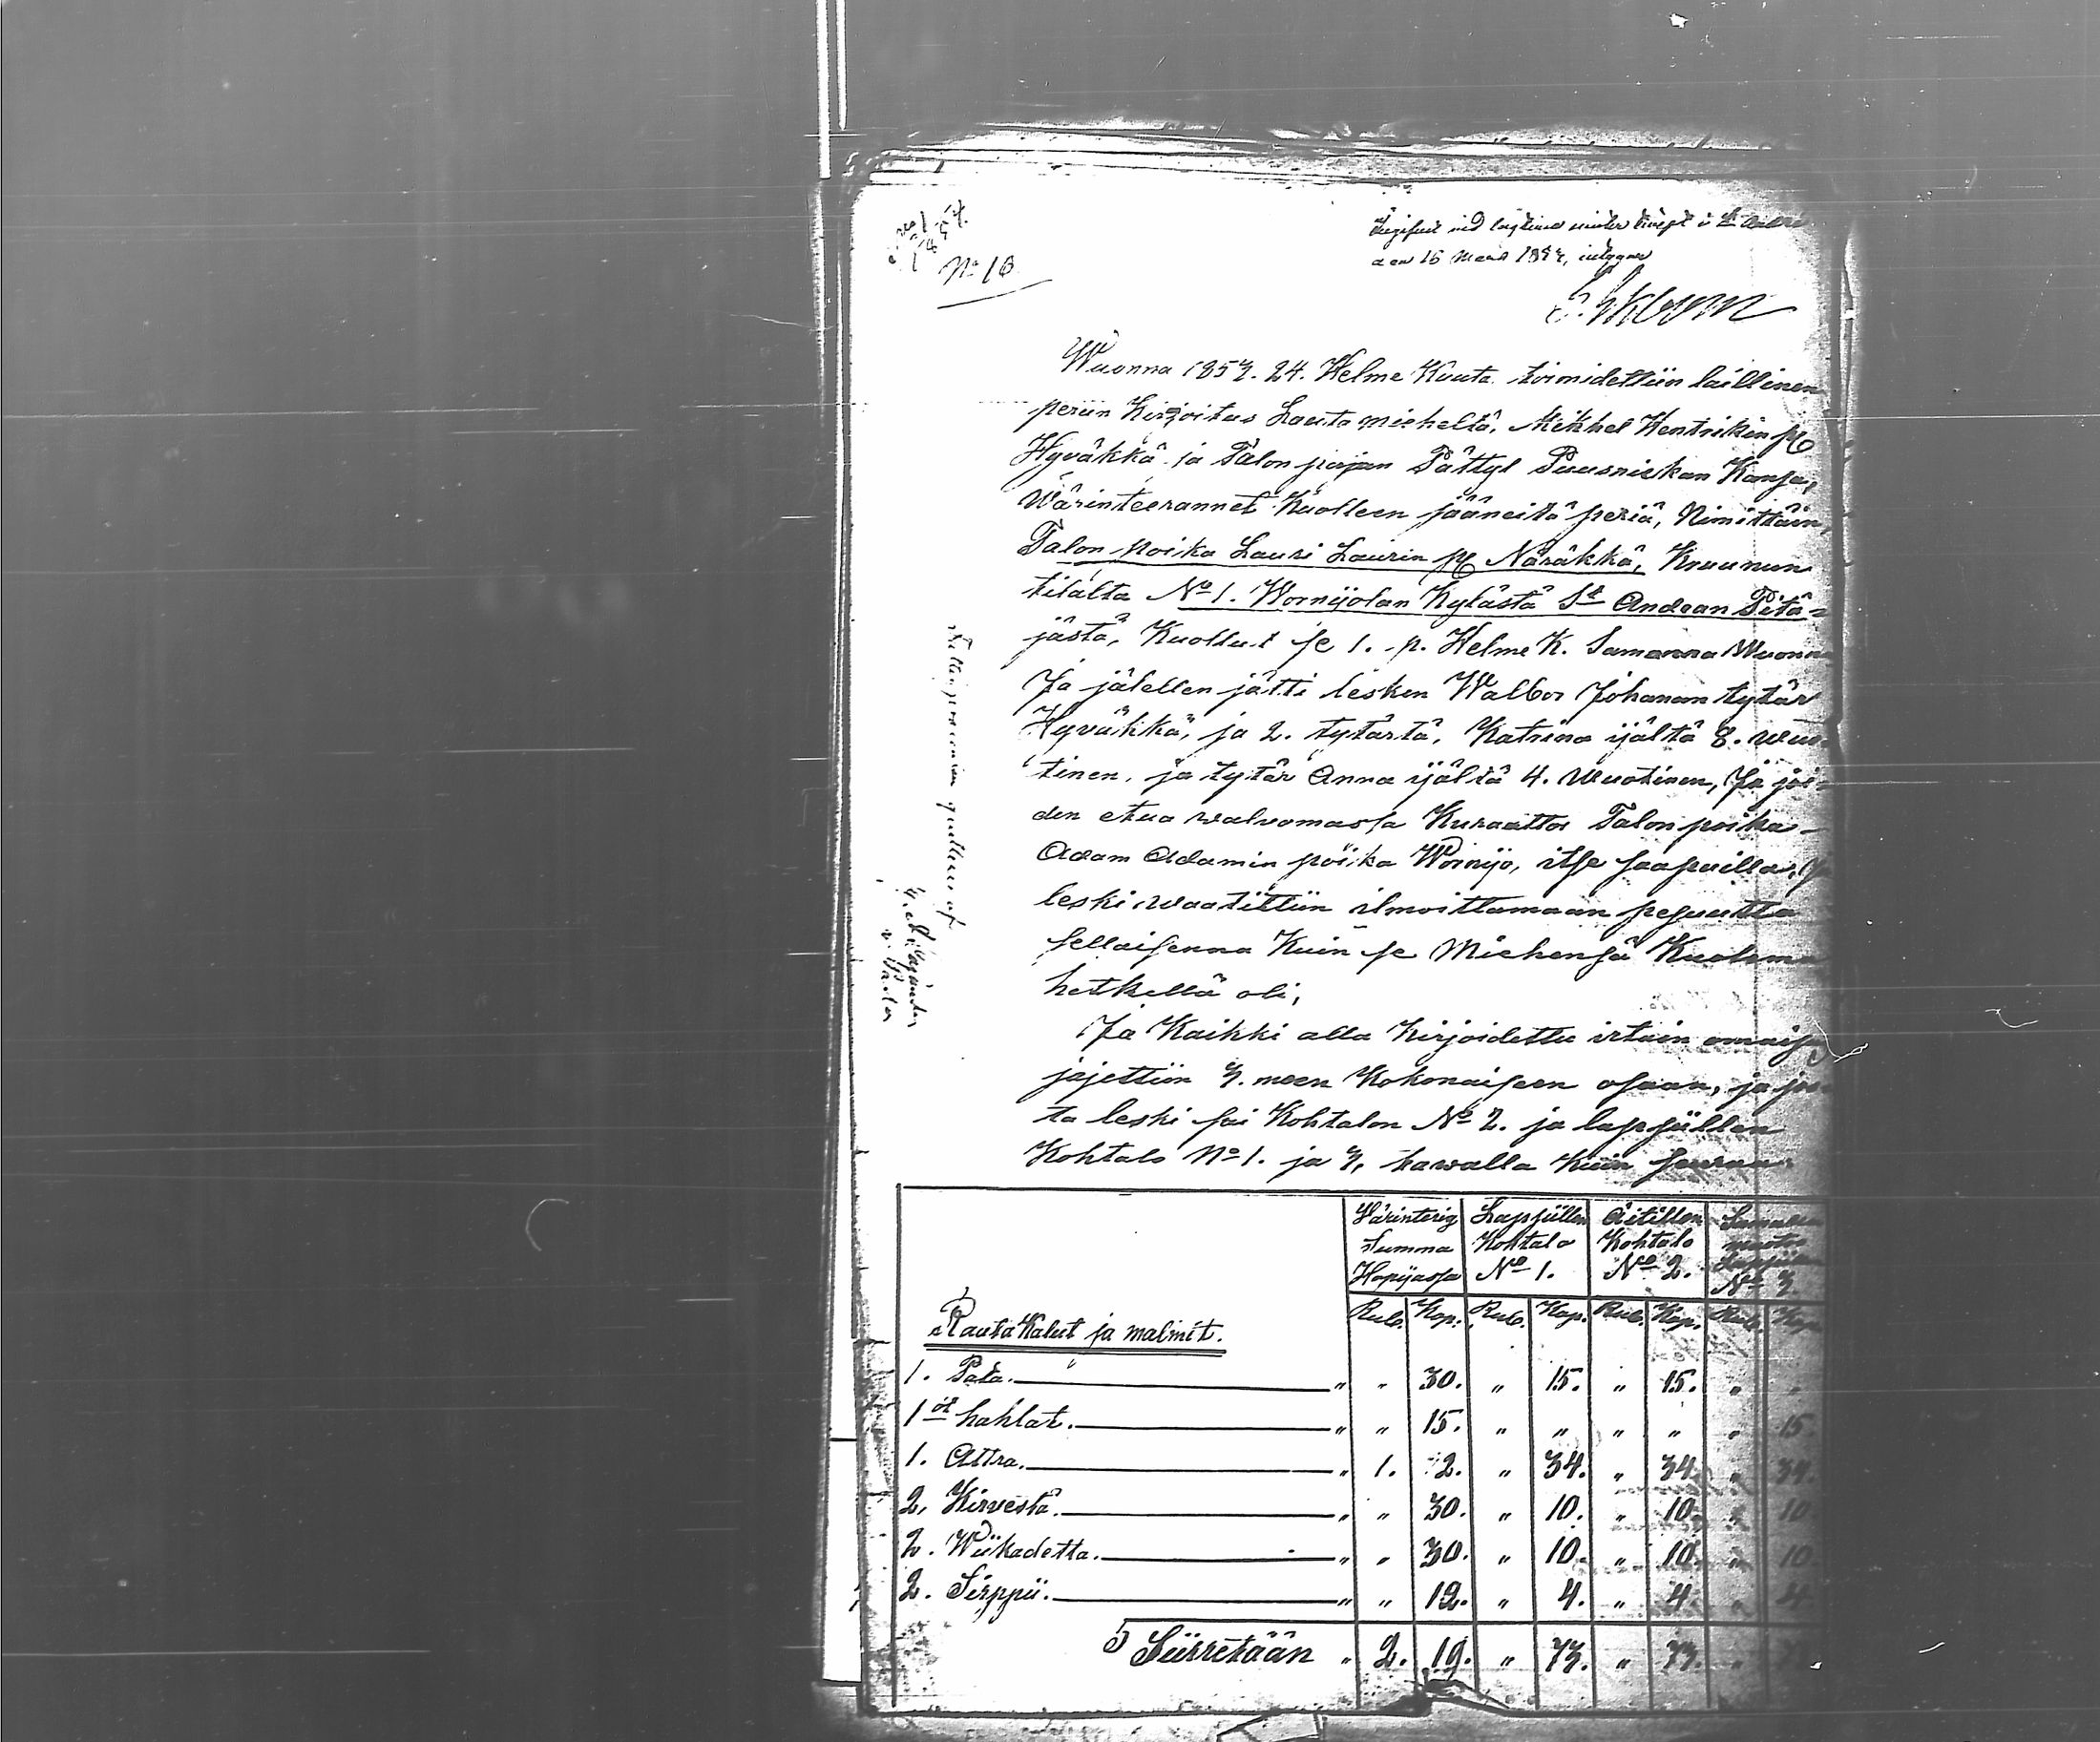 No 10
Wuonna 1857. 24. Helme Kuuta toimidettiin laillinen
periin Kirjoitus Lautamieheltä, Mikhel Hentrikin p:
Hyväkkä ja Talon pojan Pättyl Puusniekan Kansa,
Wärinteerannet Kuolleen jääneitä periä, Nimittäin,
Talon poika Lauri Laurin p: Näräkkä, Kruunun
tilalta No 1. Wornijolan Kylästä St Andean Pitä-
jästä, Kuollut se 1. p. Helme K. Samanna Wuonna
Ja jälellen jätti lesken Walbor Johanan tytär
Hyväkkä, ja 2. tytärtä, Katrina ijältä 8. wuo-
tinen, ja tytär Anna ijältä 4. Wuotinen, Ja joi-
den etua walvomassa Kuraattor Talon poika
Adam Adamin poika Woinijo, itse saapuilla, Ja
leski waatittiin ilmoittamaan pesuutta
sellaisenna Kuin se Miehensä Kuolema
hetkellä oli,
Ja Kaikki alla Kirjoidettu irtain omaisu
jajettiin 3. meen Kokonaiseen osaan, ja jos
ta leski sai Kohtalon No 2. ja lapsillen
Kohtalo No 1. ja 3, tawalla Kuin seuraa
Wärinterig Lapsillen Äitillen Samallen
Summa Kohtalo Kohtalo muoto Lapsillen
Hopijassa No 1. No 2. No 3.
Rub. Kop. Rub. Kop. Rub. Kop. Rub. Kop.
Rauta Kalut ja malmit.
1. Pata. " " 30. " 15. " 15. " "
1 öt hahlat. " " 15. " " " " " 15.
1. Attra. " 1. 2. " 34. " 34. " 34.
2. Kirvestä. " " 30. " 10. " 10. " 10
2. Wiikadetta. " " 30. " 10. " 10. " 10
2. Sirppii. " " 12. " 4. " 4. " 4.
Siirretään " 2. 19. " 73. " 73. "